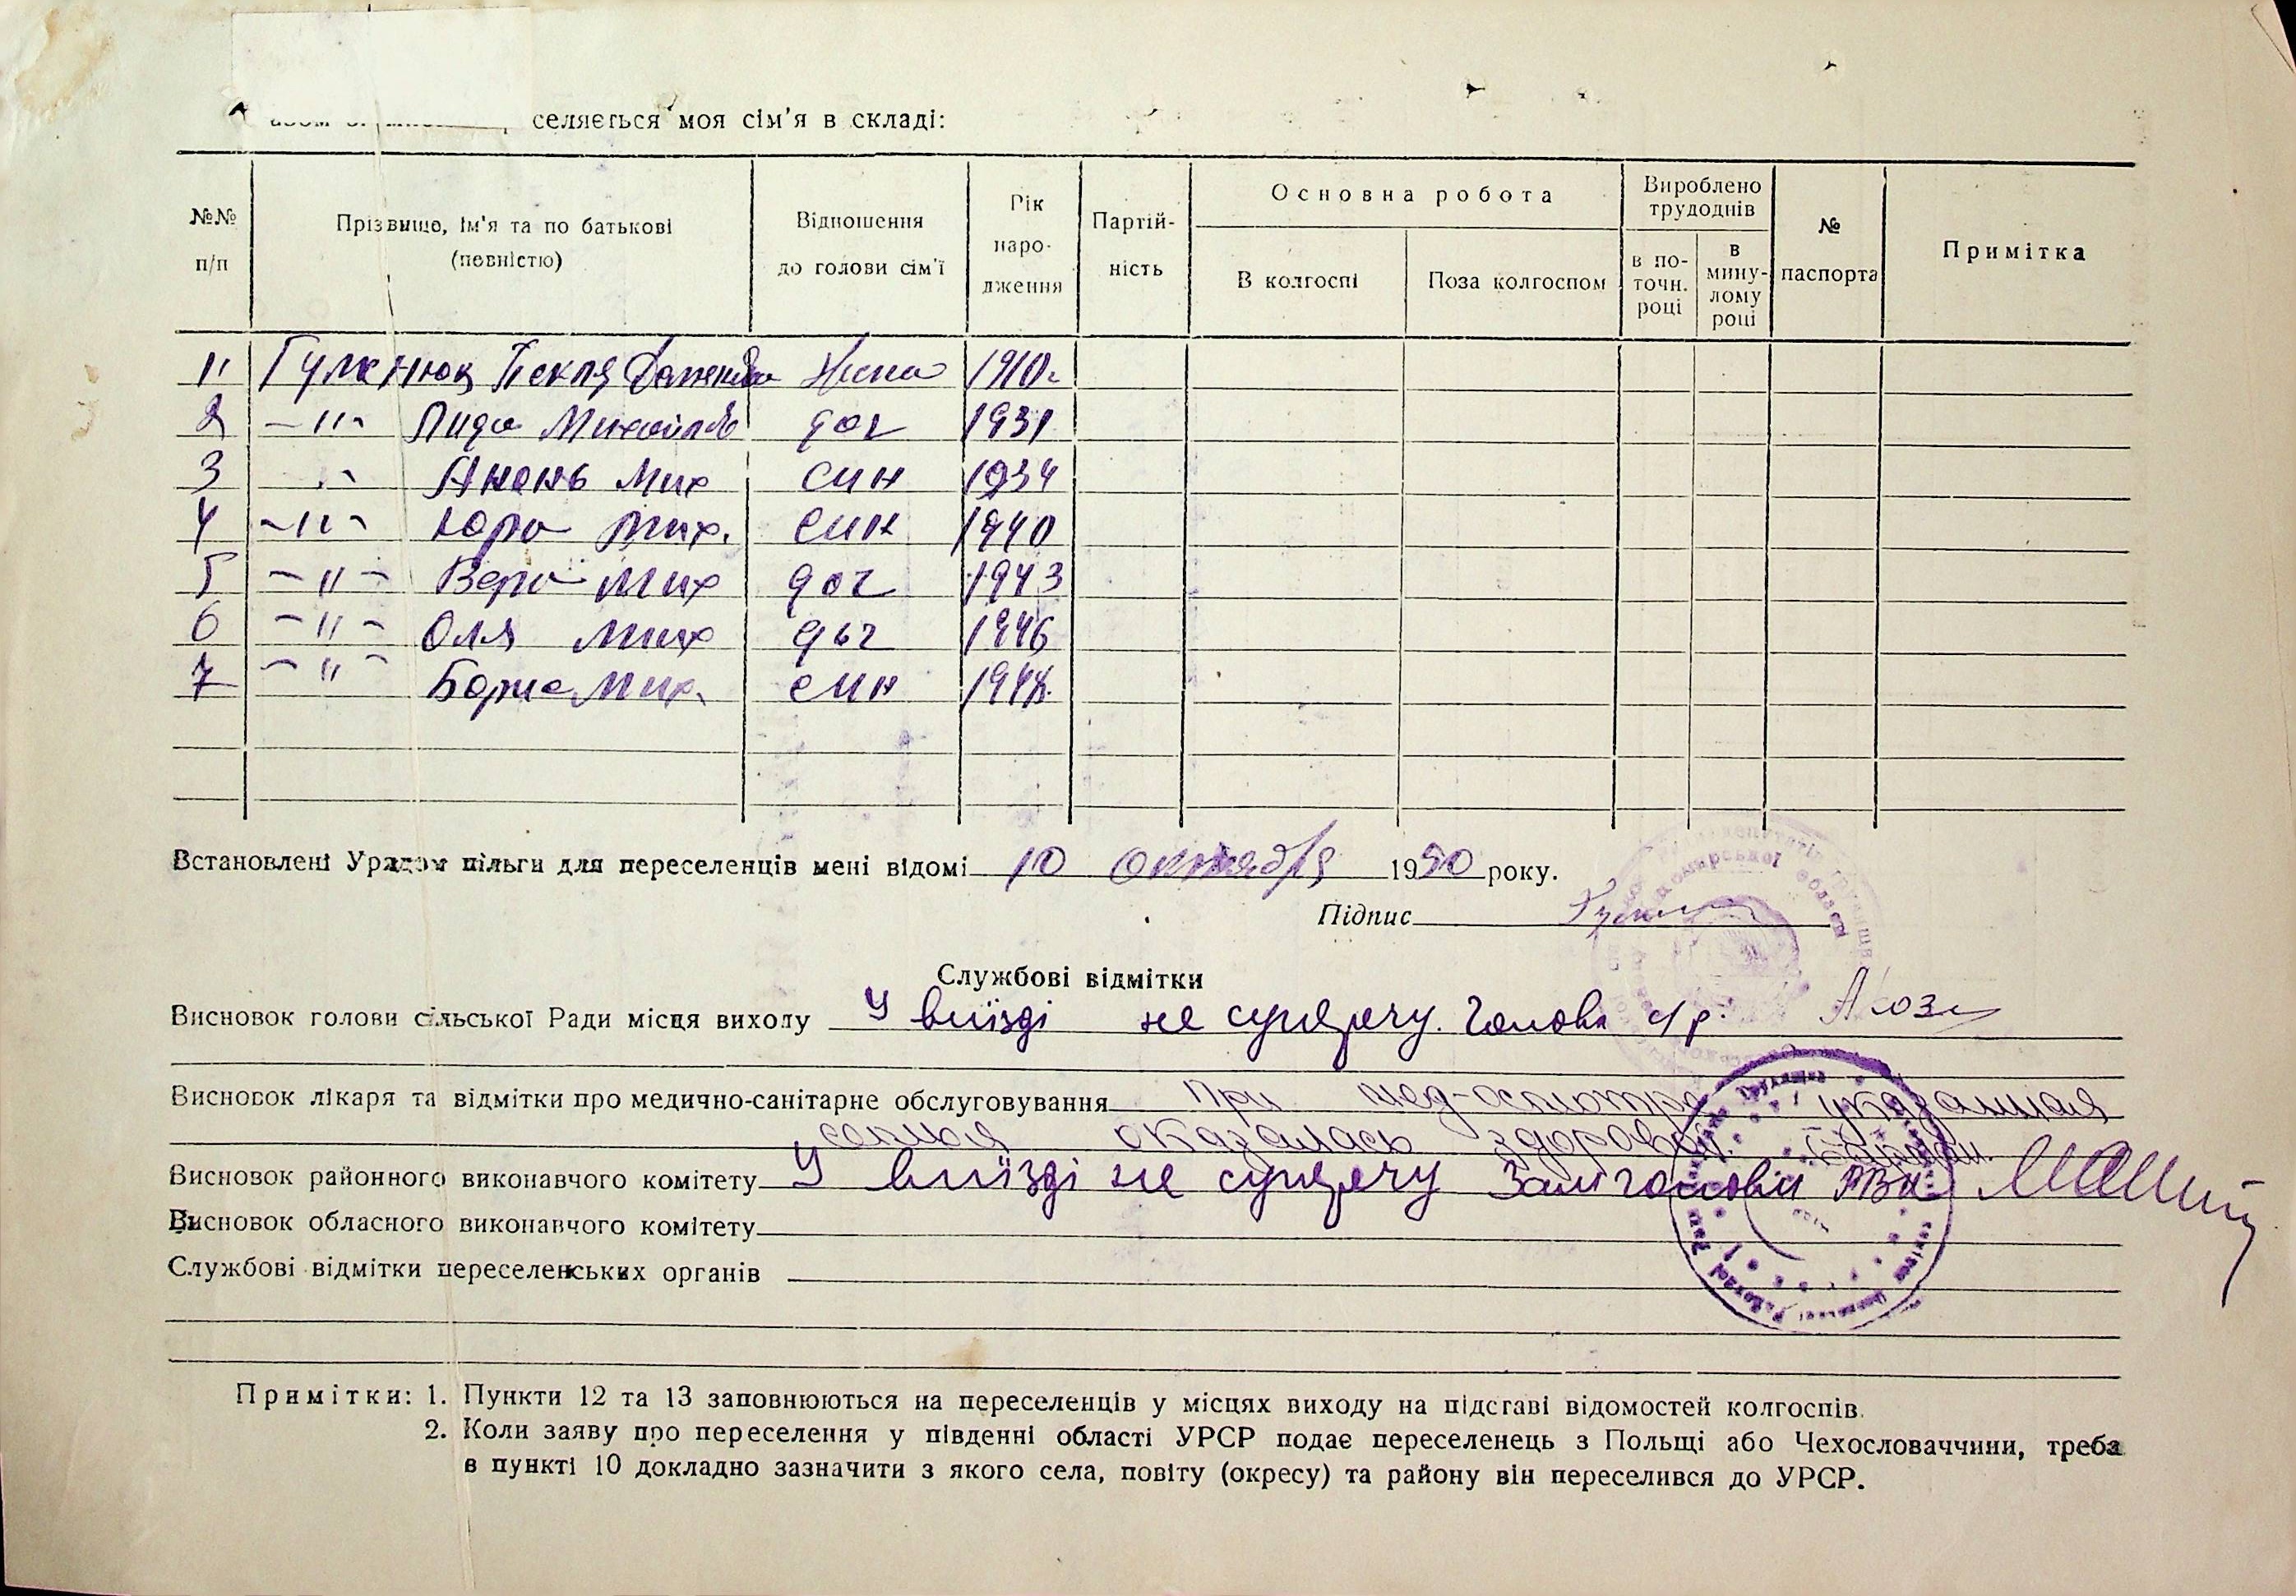 селяється моя сім'я в складі:
№№ п/п
Прізвище, ім'я та по батькові (повністю)
Відношення до голови сім'ї
Рік народження
Партійність
Основна робота
В колгоспі
Поза колгоспом
Вироблено трудоднів
в поточн. році
в минулому році
№ паспорта
Примітка
1 Текля жена 1910г
2 —"— Лида Михайлів доч 1931
3 " Мих син 1934
4 —"— Юра Мих. син 1940
5 —"— Вера Мих доч 1943
6 —"— Оля Мих доч 1946
7 —"— Борис Мих. син 1948
Встановлені Урядом пільги для переселенців мені відомі 10 октября 1950 року.
Підпис
Службові відмітки
Висновок голови сільської Ради місця виходу У виїзді не суперечу. Голова с/р.
Висновок лікаря та відмітки про медично-санітарне обслуговування При мед-осмотре указанная
семья оказалась здоровой.
Висновок районного виконавчого комітету У виїзді не суперечу Заст голови РВК
Висновок обласного виконавчого комітету
Службові відмітки переселенських органів
Примітки: 1. Пункти 12 та 13 заповнюються на переселенців у місцях виходу на підставі відомостей колгоспів.
2. Коли заяву про переселення у південні області УРСР подає переселенець з Польщі або Чехословаччини, треба
в пункті 10 докладно зазначити з якого села, повіту (окресу) та району він переселився до УРСР.